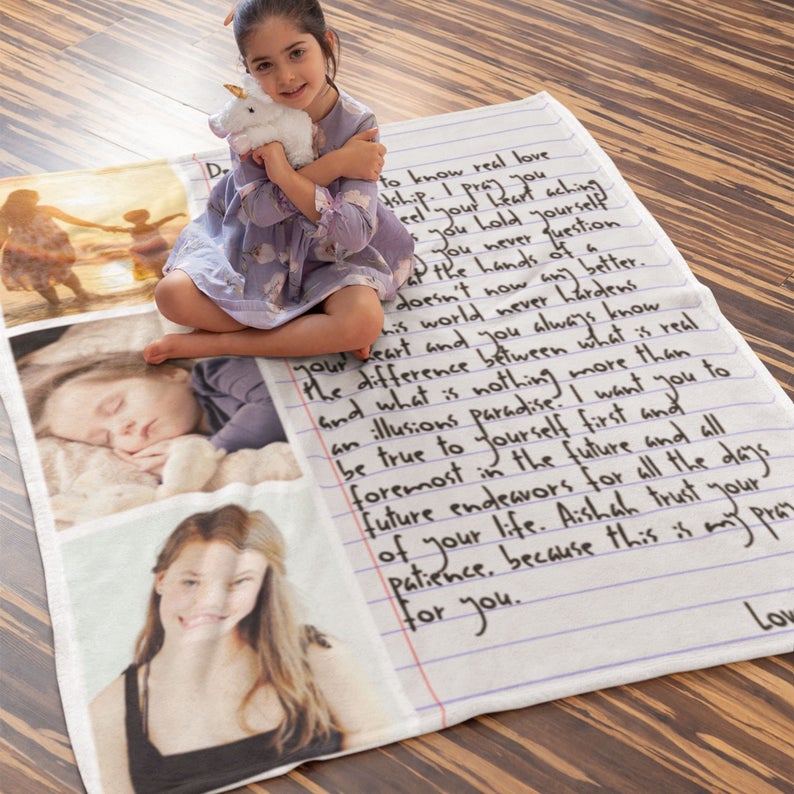 to know real love
I pray you
your heart aching
you hold yourself
you never question
at the hands of a
doesn't now any better.
world never hardens
heart and you always know
the difference between what is real
and what is nothing more than
an illusions paradise. I want you to
be true to yourself first and
foremost in the future and all
future endeavors for all the days
of your life. Aishah trust your
patience, because this is my pray
for you.
Lov